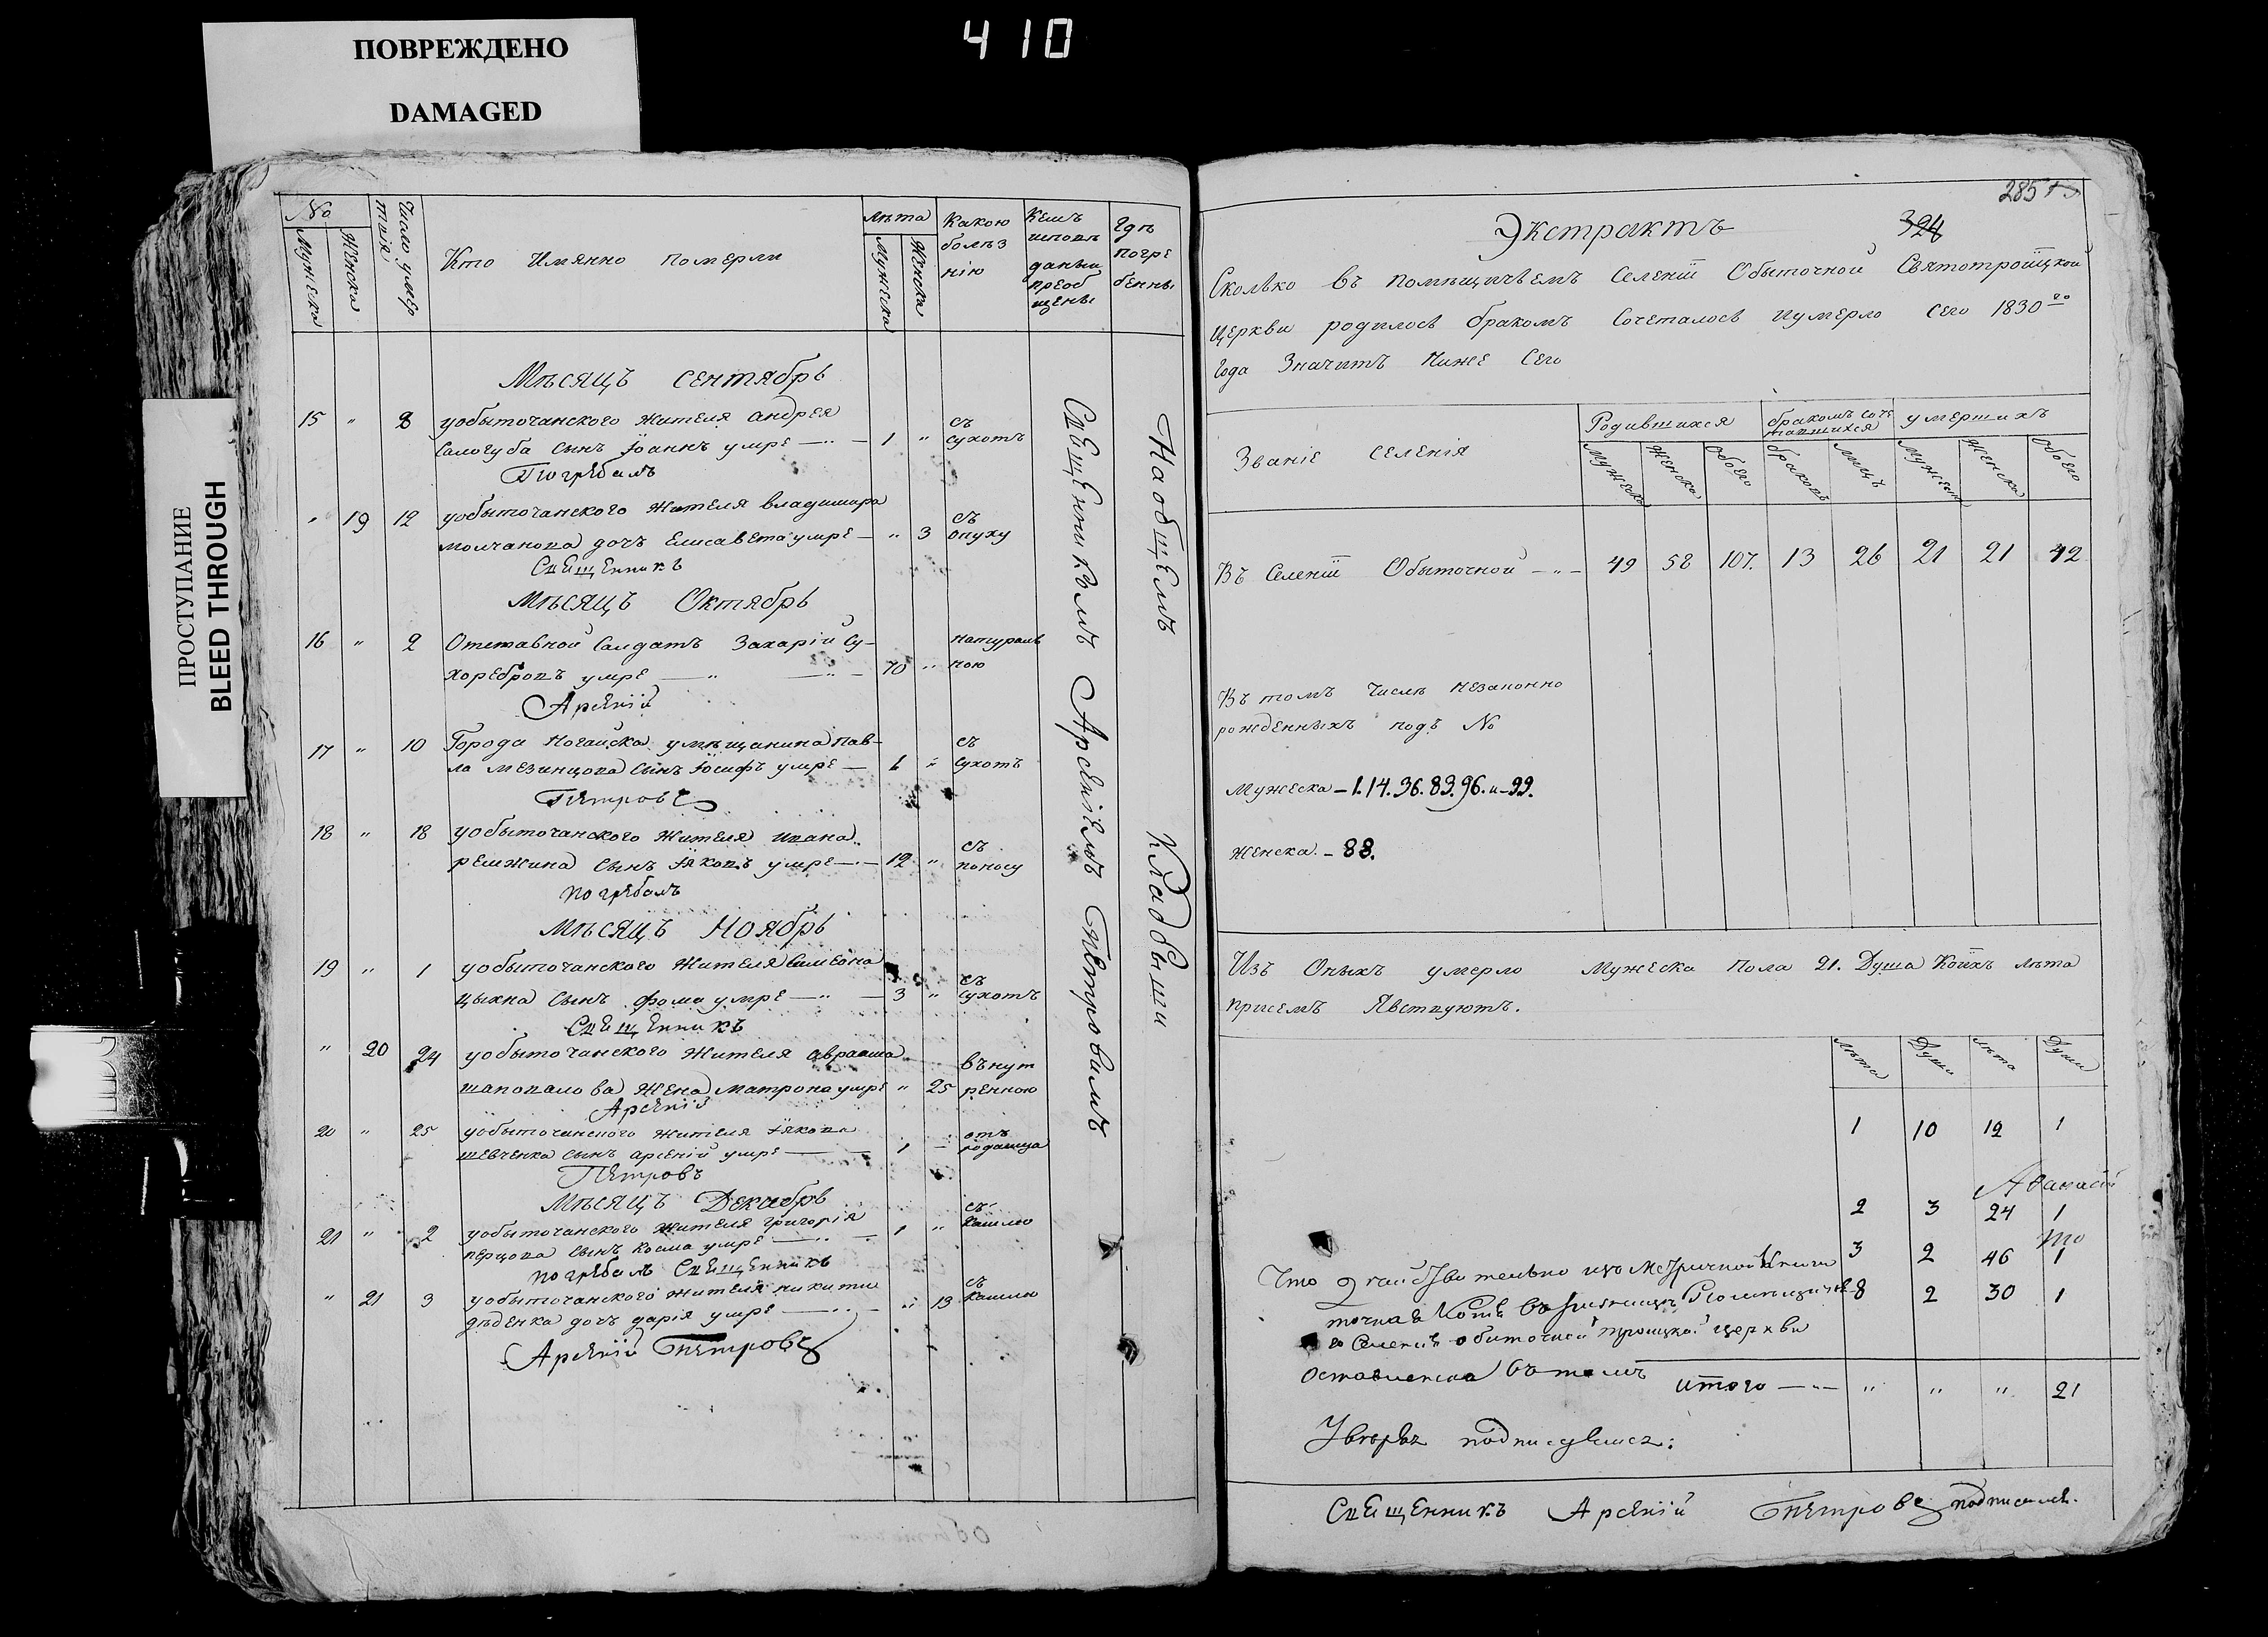 ПОВРЕЖДЕНО
DAMAGED
410
ПРОСТУПАНИЕ
BLEED THROUGH
№
Мужеска
Женска
Число умер
твія
Кто Имянно померли
лѣта
Мужеска
Женска
Какою
болѣз
нію
Кемъ
исповѣ
даны и
преоб
щены
Гдѣ
погре
бенны
Мѣсяцъ сентябрь
15 " 8 уобыточанского жителя андрея
Салогуба сынъ Іоаннъ умре — " — 1 " съ сухотъ
Погребалъ
" 19 12 уобыточанского жителя владимира
молчанова дочь Елисавета умре — " 3 съ опуху
Священникъ
Мѣсяцъ Октябрь
16 " 2 Отставной Салдатъ Захарій Су-
хоребровъ умре — " — " — 70 " натураль ною
Арсеній
17 " 10 Города Ногайска умѣщанина Пав-
ла мезинцова сынъ Іосифъ умре — 1 " съ сухотъ
Петровъ
18 " 18 уобыточанского жителя ивана
ремжина сынъ Іяковъ умре — " — 12 " съ поносу
погребалъ
Мѣсяцъ Ноябрь
19 " 1 уобыточанского жителя Симеона
цыкна сынъ фома умре — " — 3 " съ сухотъ
Священникъ
" 20 24 уобыточанского жителя авраама
шаповалова жена матрона умре " 25 вънут ренною
Арсеній
20 " 25 уобыточанского жителя Іякова
шевченка сынъ арсеній умре — 1 — отъ родимца
Петровъ
Мѣсяцъ Декабрь
21 " 2 уобыточанского жителя григорія
перцова сынъ косма умре — " — 1 " съ кашлю
погребалъ Священникъ
" 21 3 уобыточанского жителя никиты
дѣденка дочь дарія умре — " — " 13 съ кашлю
Арсеній Петровъ
Священникомъ Арсеніемъ Петровымъ
Наобщемъ Кладбыщи
285
324
Экстрактъ
Сколько въ помѣщичьемъ селеніи Обыточной Святотроицкой
церкви родилось бракомъ Сочеталось иумерло сего 1830го
года Значитъ Ниже Сего
Званіе селенія
Родившихся
бракомъ соче
тавшихся
умершихъ
Мужеска
Женска
Обоего
браковъ
лицъ
Мужеска
Женска
Обоего
Въ Селеніи Обыточной — " — 49 58 107. 13 26 21 21 42
Въ томъ числѣ незаконно
рожденныхъ подъ №
Мужеска — 1. 14. 36. 83. 96. и — 99.
Женска — 88.
Изъ Оныхъ умерло Мужеска Пола 21. Душа Коихъ лѣта
присемъ Явствуютъ.
лѣта
Души
лѣта
Души
1 10 12 1
Аѳанасій
2 3 24 1
то
3 2 46 1
8 2 30 1
Что
Селеніи обиточной троицкой церкви
оставленна въ томъ
итого — " — " " " 21
подписуюсь:
Священникъ Арсеній Петровъ подписался.